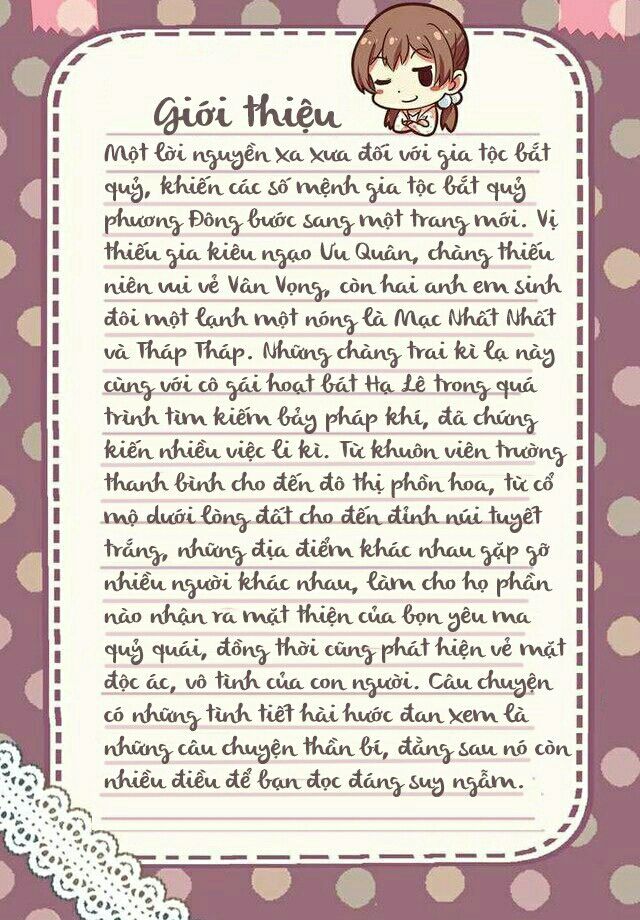 Giới thiệu
Một lời nguyền xa xưa đối với gia tộc bắt
quỷ, khiến các số mệnh gia tộc bắt quỷ
phương Đông bước sang một trang mới. Vị
thiếu gia kiêu ngạo Ưu Quân, chàng thiếu
niên vui vẻ Vân Vọng, còn hai anh em sinh
đôi một lạnh một nóng là Mạc Nhất Nhất
và Tháp Tháp. Những chàng trai kì lạ này
cùng với cô gái hoạt bát Hạ Lê trong quá
trình tìm kiếm bảy pháp khí, đã chứng
kiến nhiều việc li kì. Từ khuôn viên trường
thanh bình cho đến đô thị phồn hoa, từ cổ
mộ dưới lòng đất cho đến đỉnh núi tuyết
trắng, những địa điểm khác nhau gặp gỡ
nhiều người khác nhau, làm cho họ phần
nào nhận ra mặt thiện của bọn yêu ma
quỷ quái, đồng thời cũng phát hiện vẻ mặt
độc ác, vô tình của con người. Câu chuyện
có những tình tiết hài hước đan xem là
những câu chuyện thần bí, đằng sau nó còn
nhiều điều để bạn đọc đáng suy ngẫm.